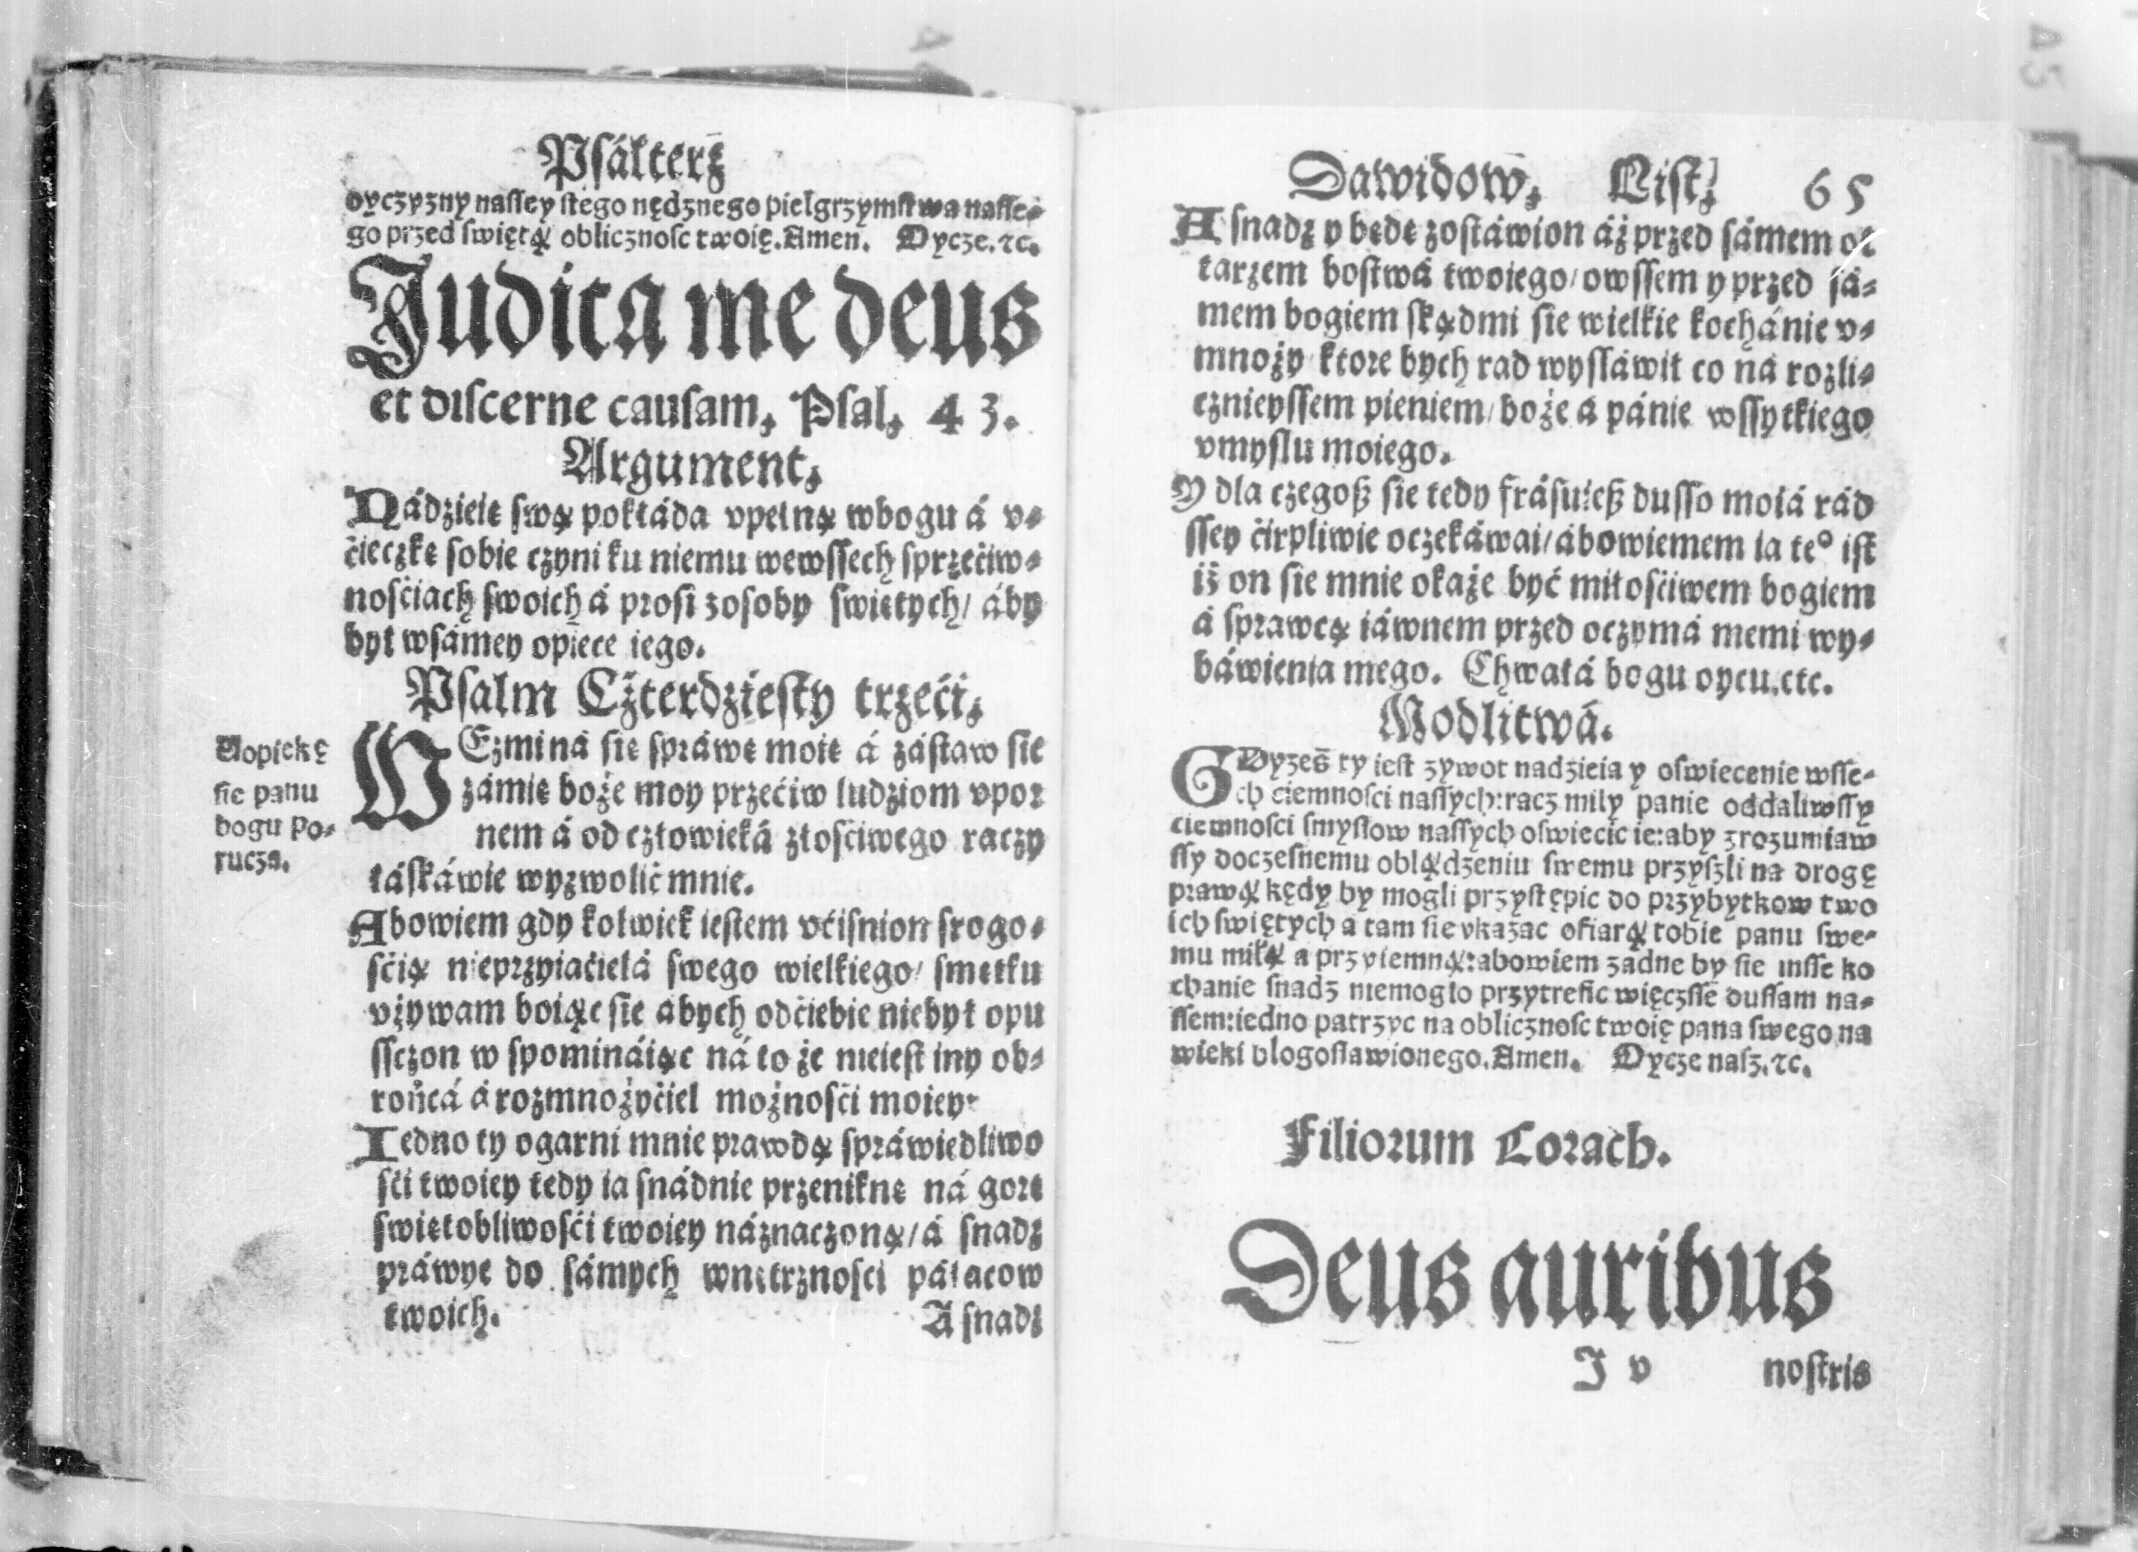 Psálterz
dyczyzny nassey stego nędznego pielgrzymstwa nasse⸗
go przed swiętą oblicznosc twoię. Amen. Oycze. ꝛc.
Judica me deus
et discerne causam, Psal, 43.
Argument,
Nádzieię swą pokłáda vpełną wbogu á v⸗
ćieczkę sobie czyni ku niemu wewssech sprzećiw⸗
nośćiach swoich á prosi zosoby swiętych/ áby
był wsámey opiece iego.
Psalm Cżterdziesty trzeći,
WEzmi ná się spráwę moię á zástaw się
zámię boże moy przećiw ludziom vpor
nem á od człowieká złośćiwego raczy
łáskáwie wyzwolić mnie.
Uopiekę
sie panu
bogu po⸗
rucza.
Abowiem gdy kolwiek iestem vćisnion srogo⸗
śćią nieprzyiaćielá swego wielkiego/ smętku
vżywam boiąc sie abych odćiebie niebył opu
ssczon w spomináiąc ná to że nieiest iny ob⸗
rońcá á rozmnożyćiel możnośći moiey.
Iedno ty ogarni mnie prawdą spráwiedliwo
śći twoiey tedy ia snádnie przeniknę ná gorę
swiętobliwośći twoiey náznaczoną/ á snadz
práwye do sámych wnętrznosci páłacow
twoich.
A snadz
Dawidow, List, 65
A snadz y będę zostáwion áż przed sámem oł
tarzem bostwá twoiego/ owssem y przed sá⸗
mem bogiem skądmi sie wielkie kochánie v⸗
mnoży/ ktore bych rad wysláwił co ná rozli⸗
cznieyssem pieniem/ boże á pánie wssytkiego
vmyslu moiego.
Y dla czegoß sie tedy frásuieß dusso moiá rád
ssey ćirpliwie oczekáwai/ ábowiemem ia te° ist
iż on sie mnie okaże być miłośćiwem bogiem
á sprawcą iáwnem przed oczymá memi wy⸗
báwienia mego. Chwałá bogu oycu. etc.
Modlitwá.
GDyzes ty iest zywot nadzieia y oswiecenie wsse⸗
ch ciemnosci nassych: racz miły panie oddaliwssy
ciemnosci smysłow nassych oswiecic ie: aby zrozumiaw
ssy doczesnemu obłądzeniu swemu przyszli na drogę
prawą kędy by mogli przystępic do przybytkow two
ich swiętych a tam sie vkazac ofiarą tobie panu swe⸗
mu miłą a przyiemną: abowiem zadne by sie insse ko
chanie snadz niemogło przytrefic więczsse dussam na⸗
ssem: iedno patrzyc na oblicznosc twoię pana swego na
wieki blogosławionego. Amen. Oycze nasz. ꝛc.
Filiorum Corach.
Deus auribus
I v nostris